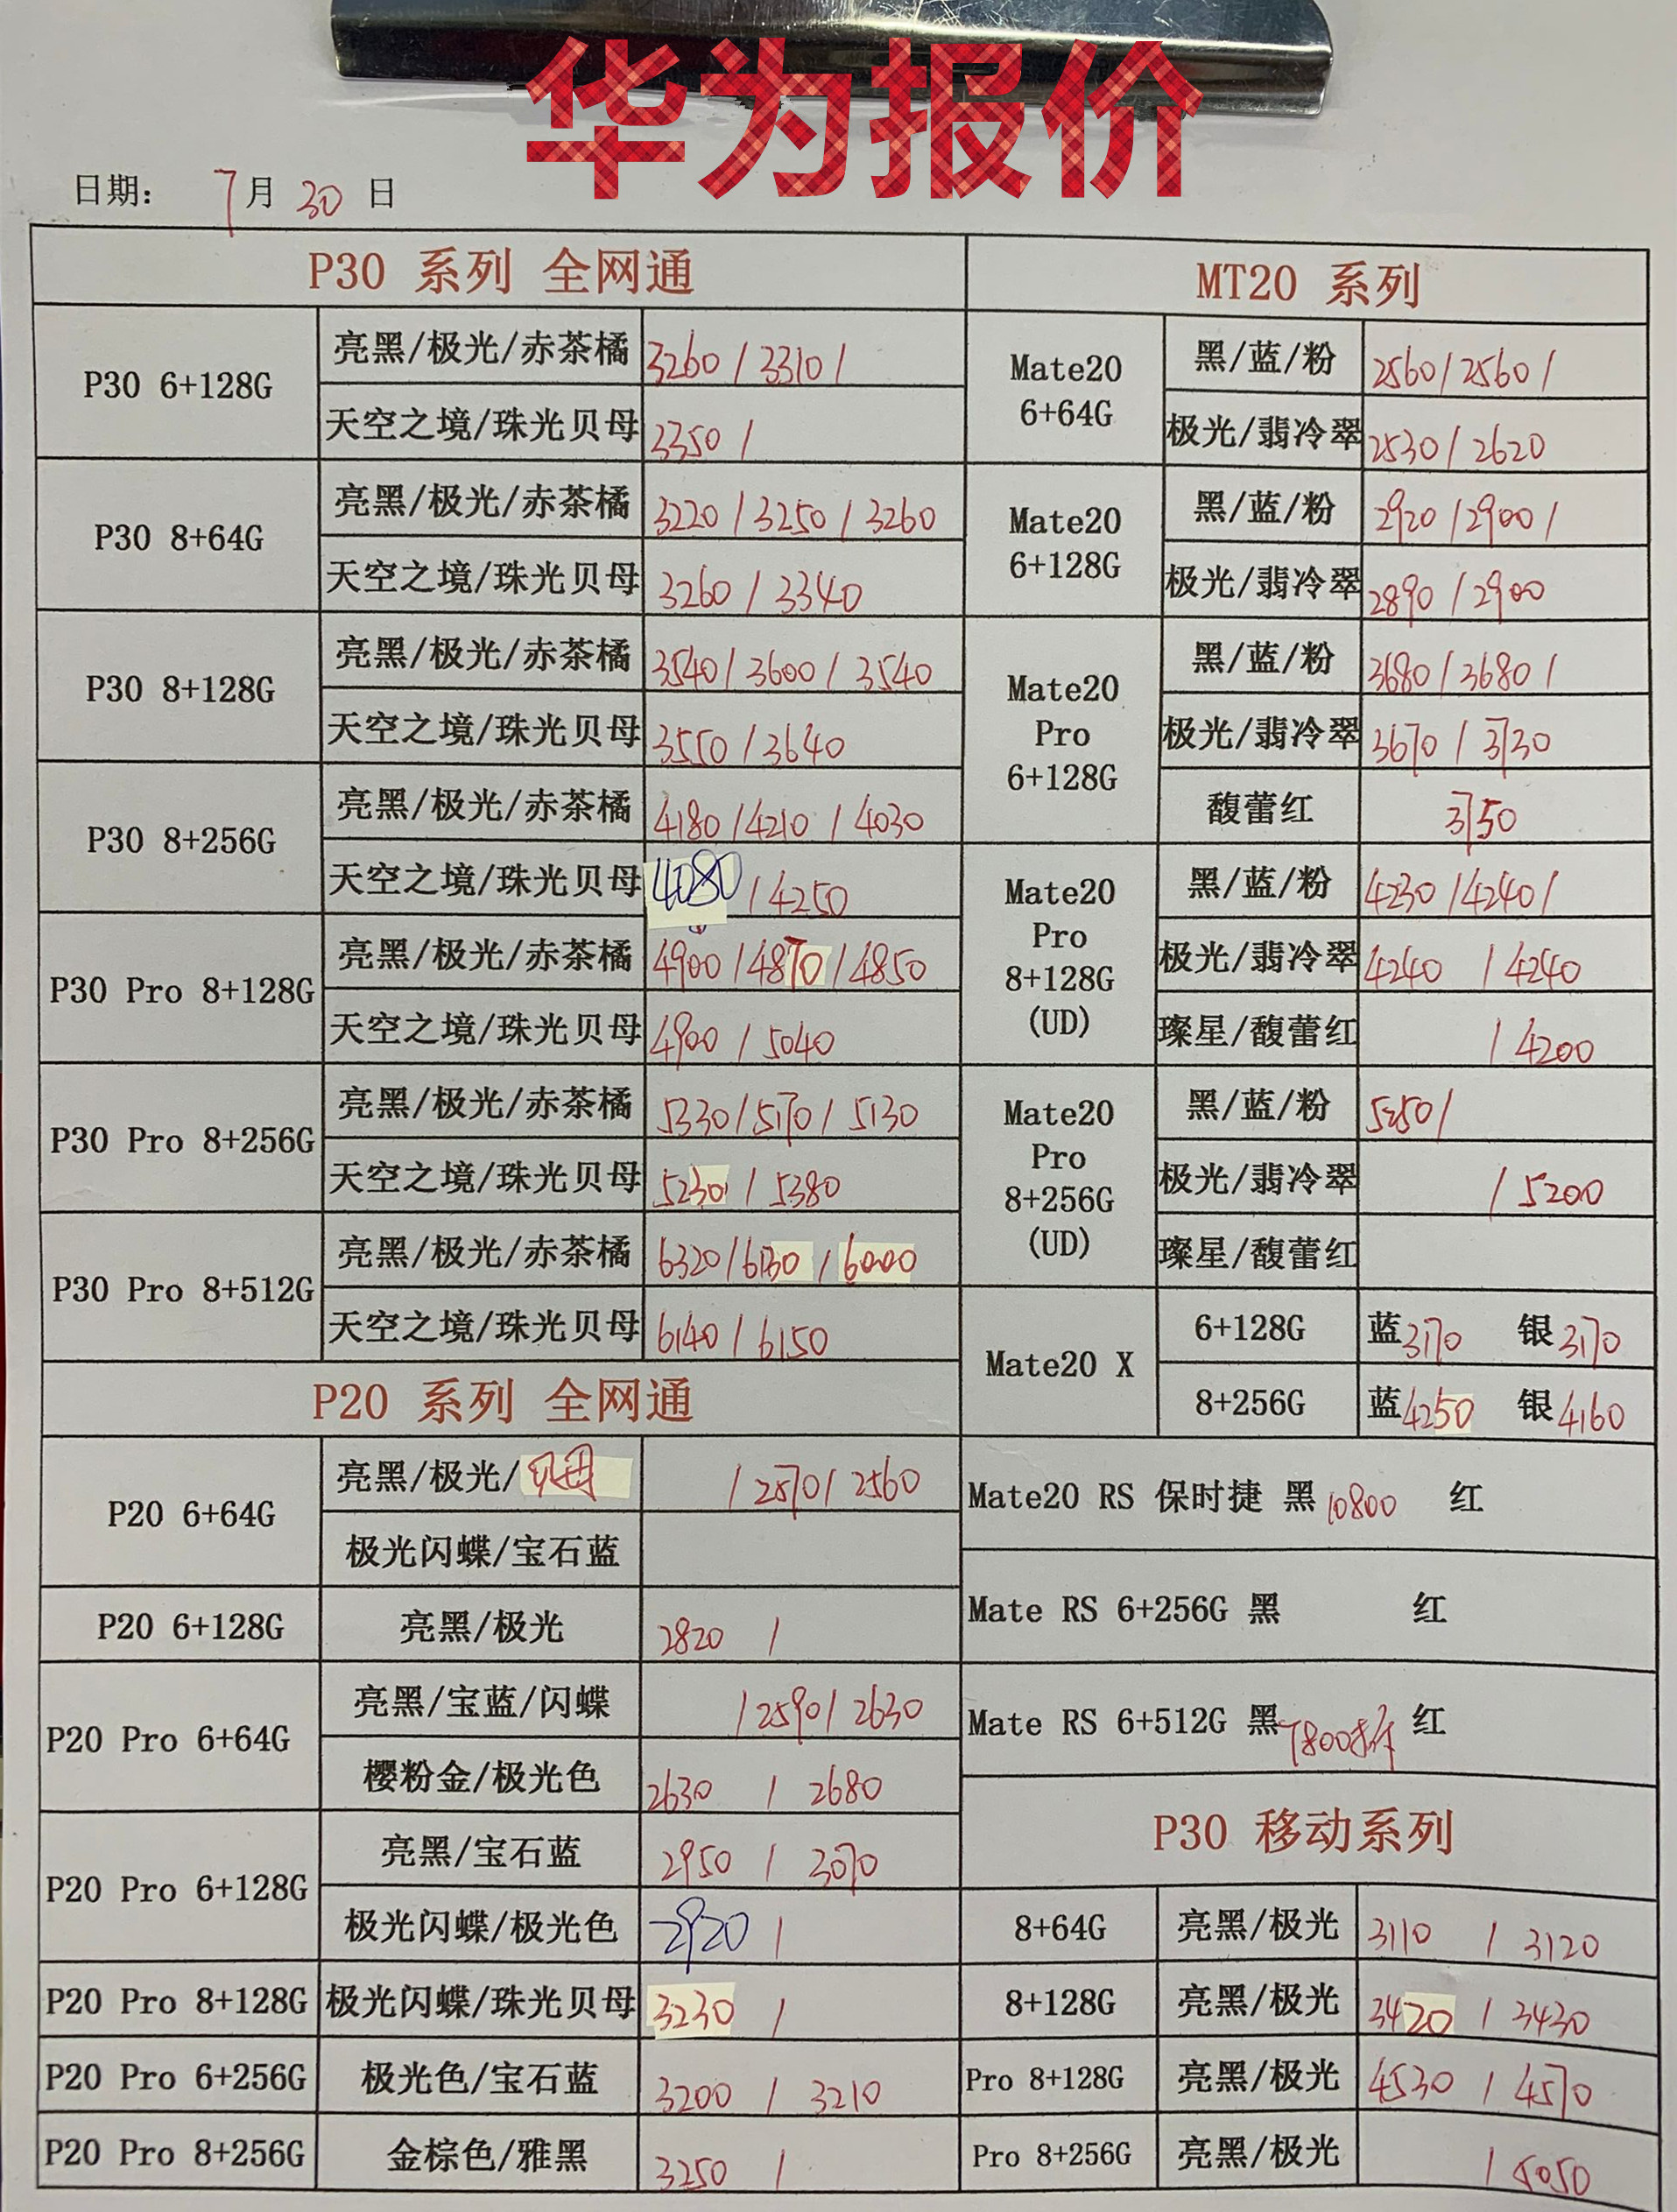 华为报价
日期： 7月30日
P30 系列 全网通
P30 6+128G 亮黑/极光/赤茶橘 3260/3310/
天空之境/珠光贝母 3350/
P30 8+64G 亮黑/极光/赤茶橘 3220/3250/3260
天空之境/珠光贝母 3260/3340
P30 8+128G 亮黑/极光/赤茶橘 3540/3600/3540
天空之境/珠光贝母 3550/3640
P30 8+256G 亮黑/极光/赤茶橘 4180/4210/4030
天空之境/珠光贝母 4080/4250
P30 Pro 8+128G 亮黑/极光/赤茶橘 4900/4870/4850
天空之境/珠光贝母 4900/5040
P30 Pro 8+256G 亮黑/极光/赤茶橘 5330/5170/5130
天空之境/珠光贝母 5230/5380
P30 Pro 8+512G 亮黑/极光/赤茶橘 6320/6130/6000
天空之境/珠光贝母 6140/6150
P20 系列 全网通
P20 6+64G 亮黑/极光/贝母 /2570/2560
极光闪蝶/宝石蓝
P20 6+128G 亮黑/极光 2820 /
P20 Pro 6+64G 亮黑/宝蓝/闪蝶 /2590/2630
樱粉金/极光色 2630 / 2680
P20 Pro 6+128G 亮黑/宝石蓝 2950 / 3070
极光闪蝶/极光色 2920 /
P20 Pro 8+128G 极光闪蝶/珠光贝母 3230 /
P20 Pro 6+256G 极光色/宝石蓝 3200 / 3210
P20 Pro 8+256G 金棕色/雅黑 3250 /
MT20 系列
Mate20
6+64G
黑/蓝/粉 2560/2560/
极光/翡冷翠 2530/2620
Mate20
6+128G
黑/蓝/粉 2920/2900/
极光/翡冷翠 2890/2900
Mate20
Pro
6+128G
黑/蓝/粉 3680/3680/
极光/翡冷翠 3670/3730
馥蕾红 3750
Mate20
Pro
8+128G
(UD)
黑/蓝/粉 4230/4240/
极光/翡冷翠 4240 /4240
璨星/馥蕾红 /4200
Mate20
Pro
8+256G
(UD)
黑/蓝/粉 5250/
极光/翡冷翠 /5200
璨星/馥蕾红
Mate20 X
6+128G 蓝3170 银3170
8+256G 蓝4250 银4160
Mate20 RS 保时捷 黑 10800 红
Mate RS 6+256G 黑 红
Mate RS 6+512G 黑 7800 红
P30 移动系列
8+64G 亮黑/极光 3110 / 3120
8+128G 亮黑/极光 3420 / 3430
Pro 8+128G 亮黑/极光 4530 / 4570
Pro 8+256G 亮黑/极光 / 5050